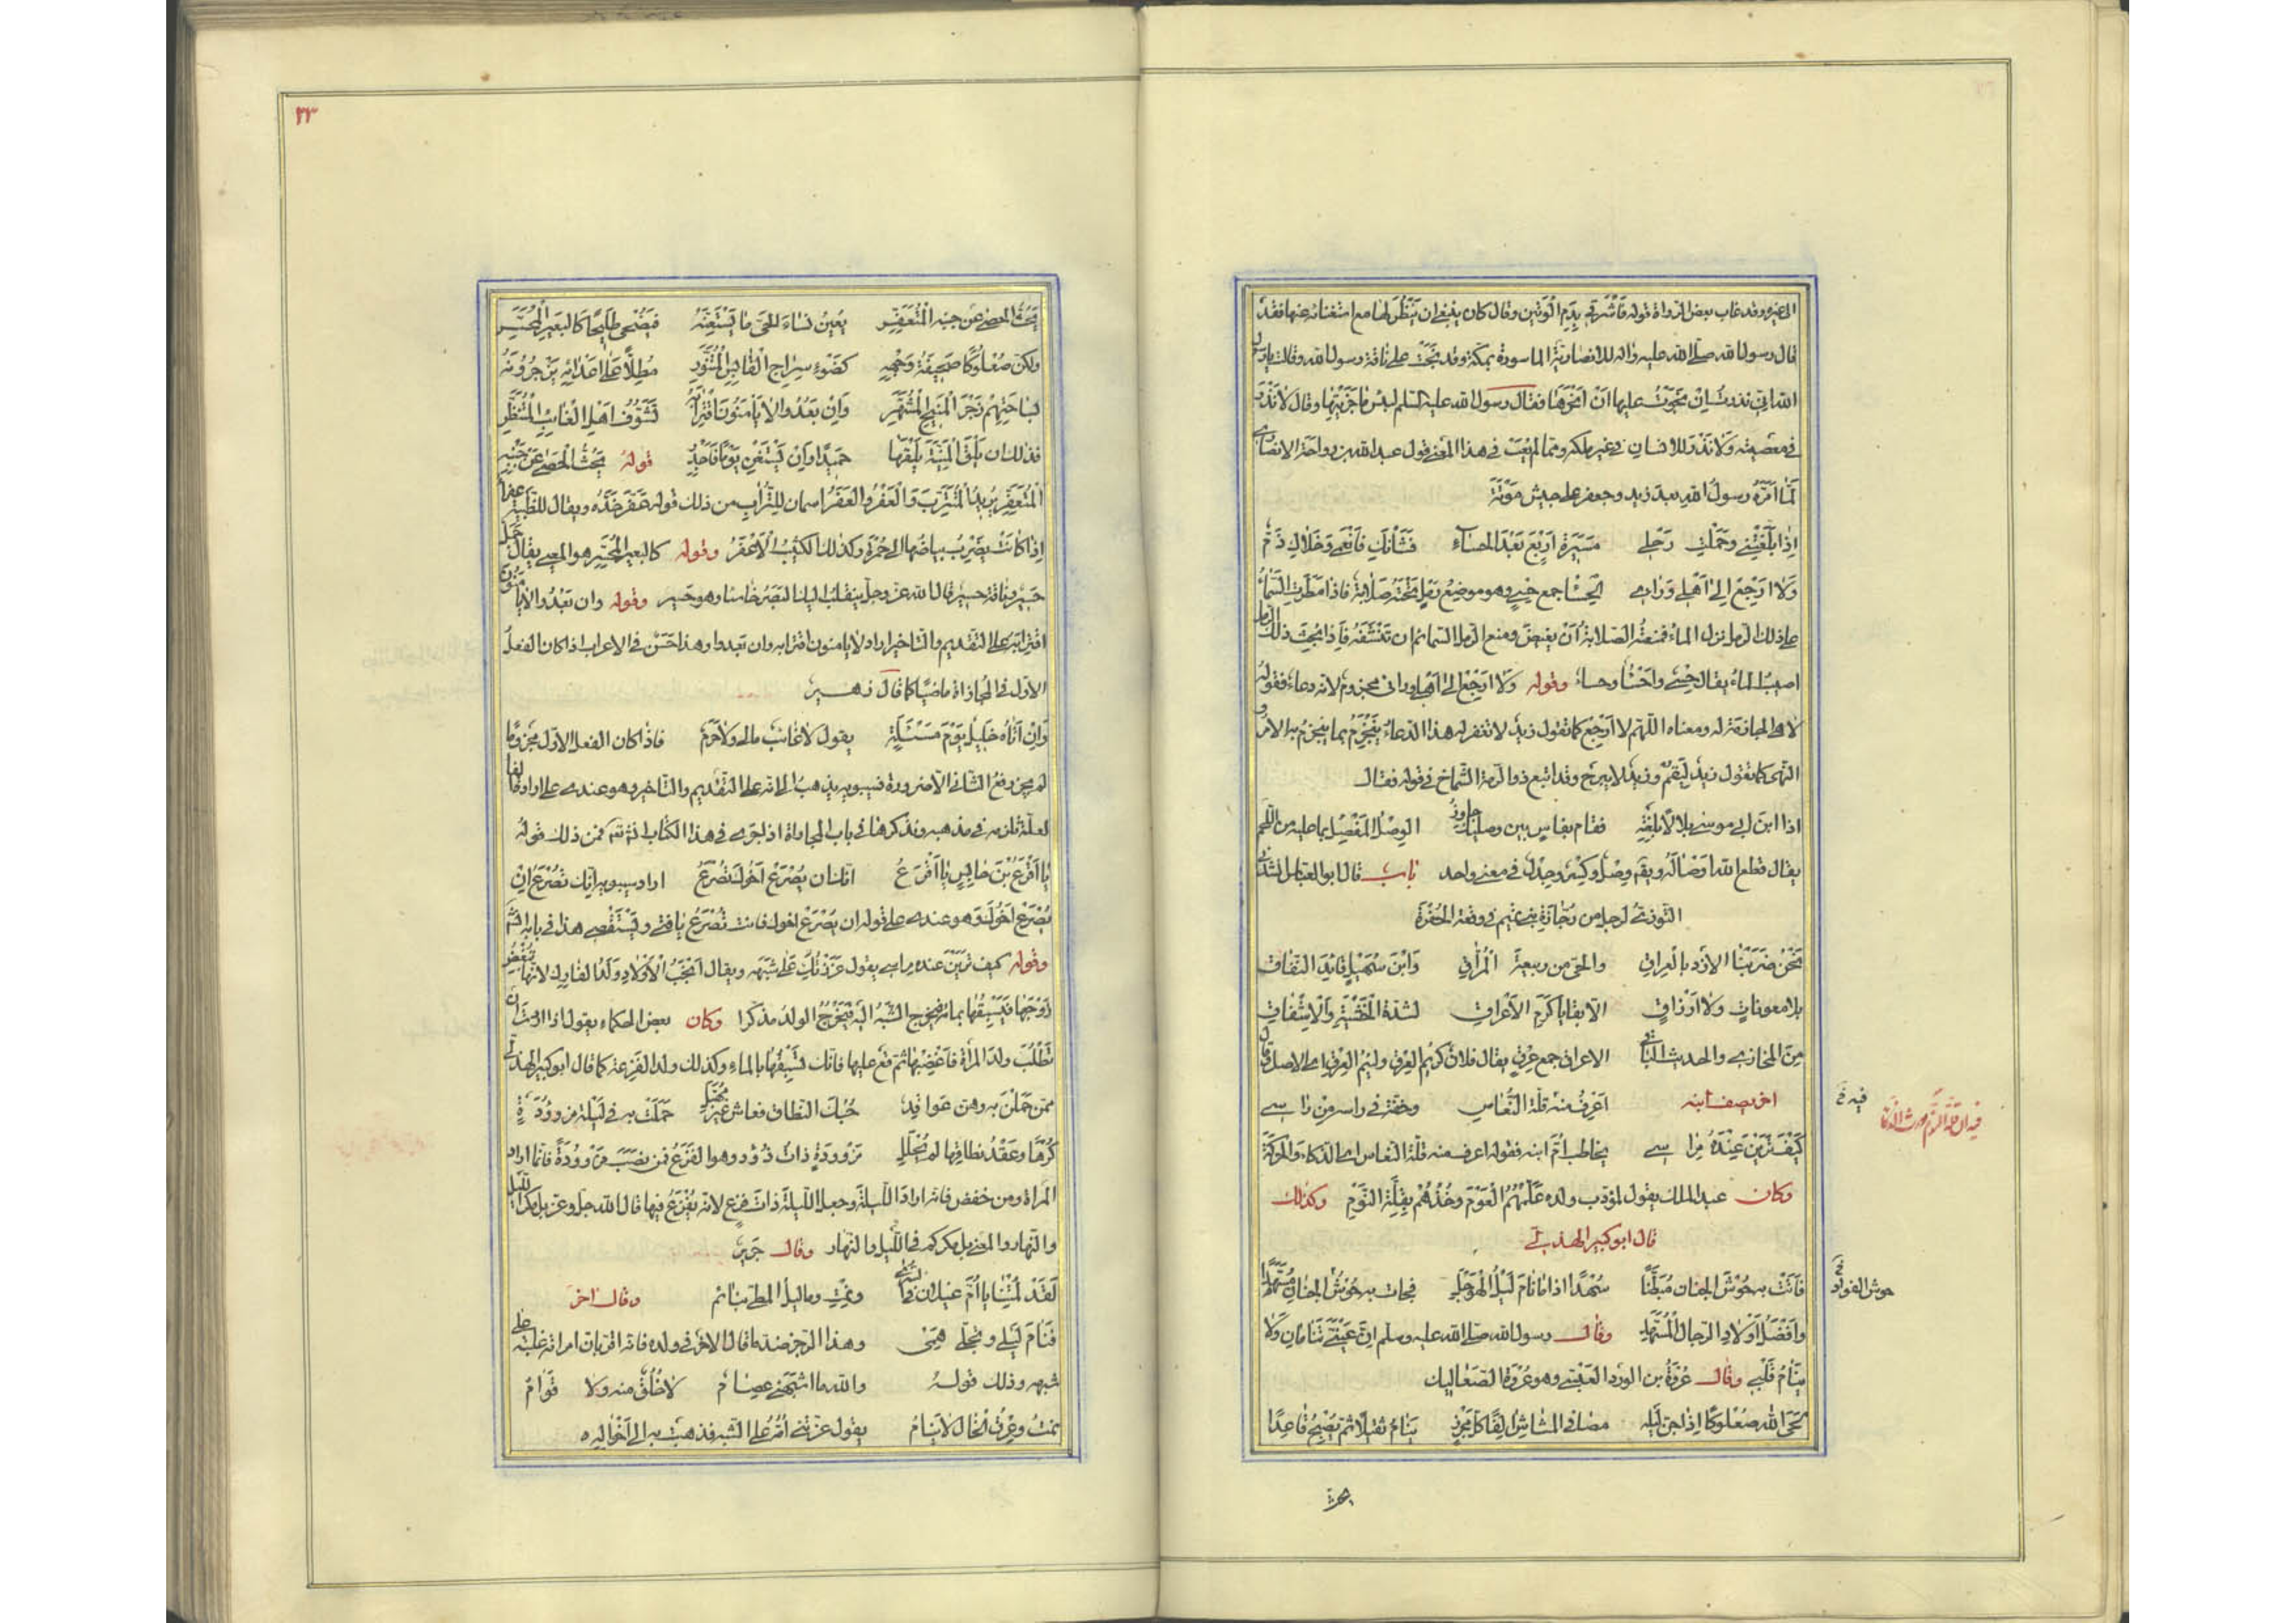 المغيرة وقد عاب بعض الرواة قوله فَاشْرَقي بِدَمِ الْوَتين وقال كان ينبغي ان يَنْظُرَ لها مع استغنائه عنها فقد
قال رسول الله صلى الله عليه واله للانصارية الماسورة بمكة وقد نَجَتْ على ناقة رسول الله وقالت يا رسول
الله اني نذرت ان نجوت عليها ان انحرها فقال رسول الله عليه السلم لبئس ما جزيتها وقال لا نذر
في معصية ولا نذر للانسان في غير ملكه ومما لم يعب في هذا المعنى قول عبد الله بن رواحة الانصاري
لما امّره رسول الله بعد زيد وجعفر على جيش مؤتة
اذا بلّغتني وحملت رحلي مسيرة اربع بعد الحساء فشانك فانعمي وخلاك ذم
ولا ارجع الى اهلي ورائي الحساء جمع حسي وهو موضع رمل تحته صلابة فاذا مطرت السماء
على ذلك الرمل نزل الماء فمنعته الصلابة ان يغيض ومنع الرمل السمائم ان تنشفه فاذا بحث ذلك الرمل
اصيب الماء يقال حسي واحساء وحساء وقوله ولا ارجع الى اهلي ورائي مجزوم لانه دعاء فقوله
لا هي الجازمة له ومعناه اللهم لا ارجع كما تقول زيد لا تغفر له هذا الدعاء ينجزم بما ينجزم به الامر و
النهى كما تقول زيد ليقم وزيد لا يبرح وقد اتبع ذو الرمة الشماخ في قوله فقال
اذا ابن ابي موسى بلالا بلغته فقام بفاس بين وصليك جازر الوصل المفصل بما عليه من اللحم
يقال قطع الله اوصاله ويقم وصل وكسر وجدل في معنى واحد باب قال ابو العباس انشدني
التوزي لرجل من رجاز بني تميم في وقعة الجفرة
نحن ضربنا الازد بالعراق والحي من ربيعة المراق وابن سهيل قائد النفاق
بلا معونات ولا ارزاق الا بقايا كرم الاعراق لشدة الخشية والاشفاق
من المخازي والحديث الباقي الاعراق جمع عرق يقال فلان كريم العرق ولئيم العرق اي الاصل وقال
اخر يصف ابنه اعرف منه قلة النعاس وخفة في راسه من راسي
فيه خ
كيف ترين عنده مراسي يخاطب ام ابنه فقوله اعرف منه قلة النعاس اي الذكاء والحركة
وكان عبد الملك يقول لمؤدب ولده علمهم العوم وخذهم بقلة النوم وكذلك
قال ابو كبير الهذلي
فاتت به حوش الجنان مبطنا سهدا اذا ما نام ليل الهوجل فجات به حوش الجنان مسهدا
حوش الفواد خ
وافضل اولاد الرجال المسهد وقال رسول الله صلى الله عليه وسلم ان عيني تنامان ولا
ينام قلبي وقال عروة بن الورد العبسي وهو عروة الصعاليك
لحى الله صعلوكا اذا جن ليله مصافي المشاش الفا كل مجزر ينام ثقيلا ثم يصبح قاعدا
يحث
٢٣
يحت الحصى عن جنبه المتعفر يعين نساء الحي ما يستعنه فيضحى طليحا كالبعير المحسر
ولكن صعلوكا صحيفة وجهه كضوء سراج القابس المتنور مطلا على اعدائه يزجرونه
بساحتهم زجر المنيح المشهر وان بعدوا لا يامنون اقترابه تشوف اهل الغائب المتنظر
فذلك ان يلق المنية يلقها حميدا وان يستغن يوما فاجدر قوله يحت الحصى عن جنبه
المتعفر يريد المتترب والعفر والعفر اسمان للتراب من ذلك قوله عفر خده ويقال للظبية عفراء
اذا كانت يضرب بياضها الى حمرة وكذلك الكثيب الاعفر وقوله كالبعير المحسر هو المعيي يقال جمل
حسير وناقة حسير قال الله عز وجل ينقلب اليك البصر خاسئا وهو حسير وقوله وان بعدوا لا يامنون
اقترابه على التقديم والتاخير اراد لا يامنون اقترابه وان بعدوا وهذا حسن في الاعراب اذا كان الفعل
الاول في المجازاة ماضيا كما قال زهير
وان اتاه خليل يوم مسئلة يقول لا غائب مالي ولا حرم فاذا كان الفعل الاول مجزوما
لم يجز رفع الثاني الا ضرورة فسيبويه يذهب الى انه على التقديم والتاخير وهو عندي على ارادة الفاء
لعلة تلزمه في مذهبه ونذكرها في باب المجازاة اذا جرى في هذا الكتاب انش تع فمن ذلك قوله
يا اقرع بن حابس يا اقرع انك ان يصرع اخوك تصرع اراد سيبويه انك تصرع ان
يصرع اخوك وهو عندي على قوله ان يصرع اخوك فانت تصرع يا فتى ويستقصى هذا في بابه انش
وقوله كيف ترين عنده مراسي يقول عززتك على شبهه ويقال انجب الاولاد ولد الفارك لانها تبغض
زوجها فيسبقها بمائه فيخرج الشبه اليه فيخرج الولد مذكرا وكان بعض الحكماء يقول اذا اردت ان
تطلب ولد المراة فاغضبها ثم قع عليها فانك تسبقها بالماء وكذلك ولد الفزعة كما قال ابو كبير الهذلي
ممن حملن به وهن عواقد حبك النطاق فعاش غير مهبل حملت به في ليلة مزوودة
كرها وعقد نطاقها لم يحلل مزوودة ذات زؤد وهو الفزع فمن نصب مزوودة فانما اراد
المراة ومن خفض فانه اراد الليلة وجعل الليلة ذات فزع لانه يفزع فيها قال الله جل وعز بل مكر الليل
والنهار والمعنى بل مكركم في الليل والنهار وقال جرير
لقد لمتنا يا ام غيلان في السرى ونمت وما ليل المطي بنائم وقال اخر
فنام ليلي وتجلى همي وهذا الرجز ضد ما قال الاخر في ولده فانه اقر بان امراته غلبته على
شبهه وذلك قوله والله ما اشبهني عصام لا خلق منه ولا قوام
نمت وعرق الخال لا ينام يقول عزتني امه على الشبه فذهبت به الى اخواله